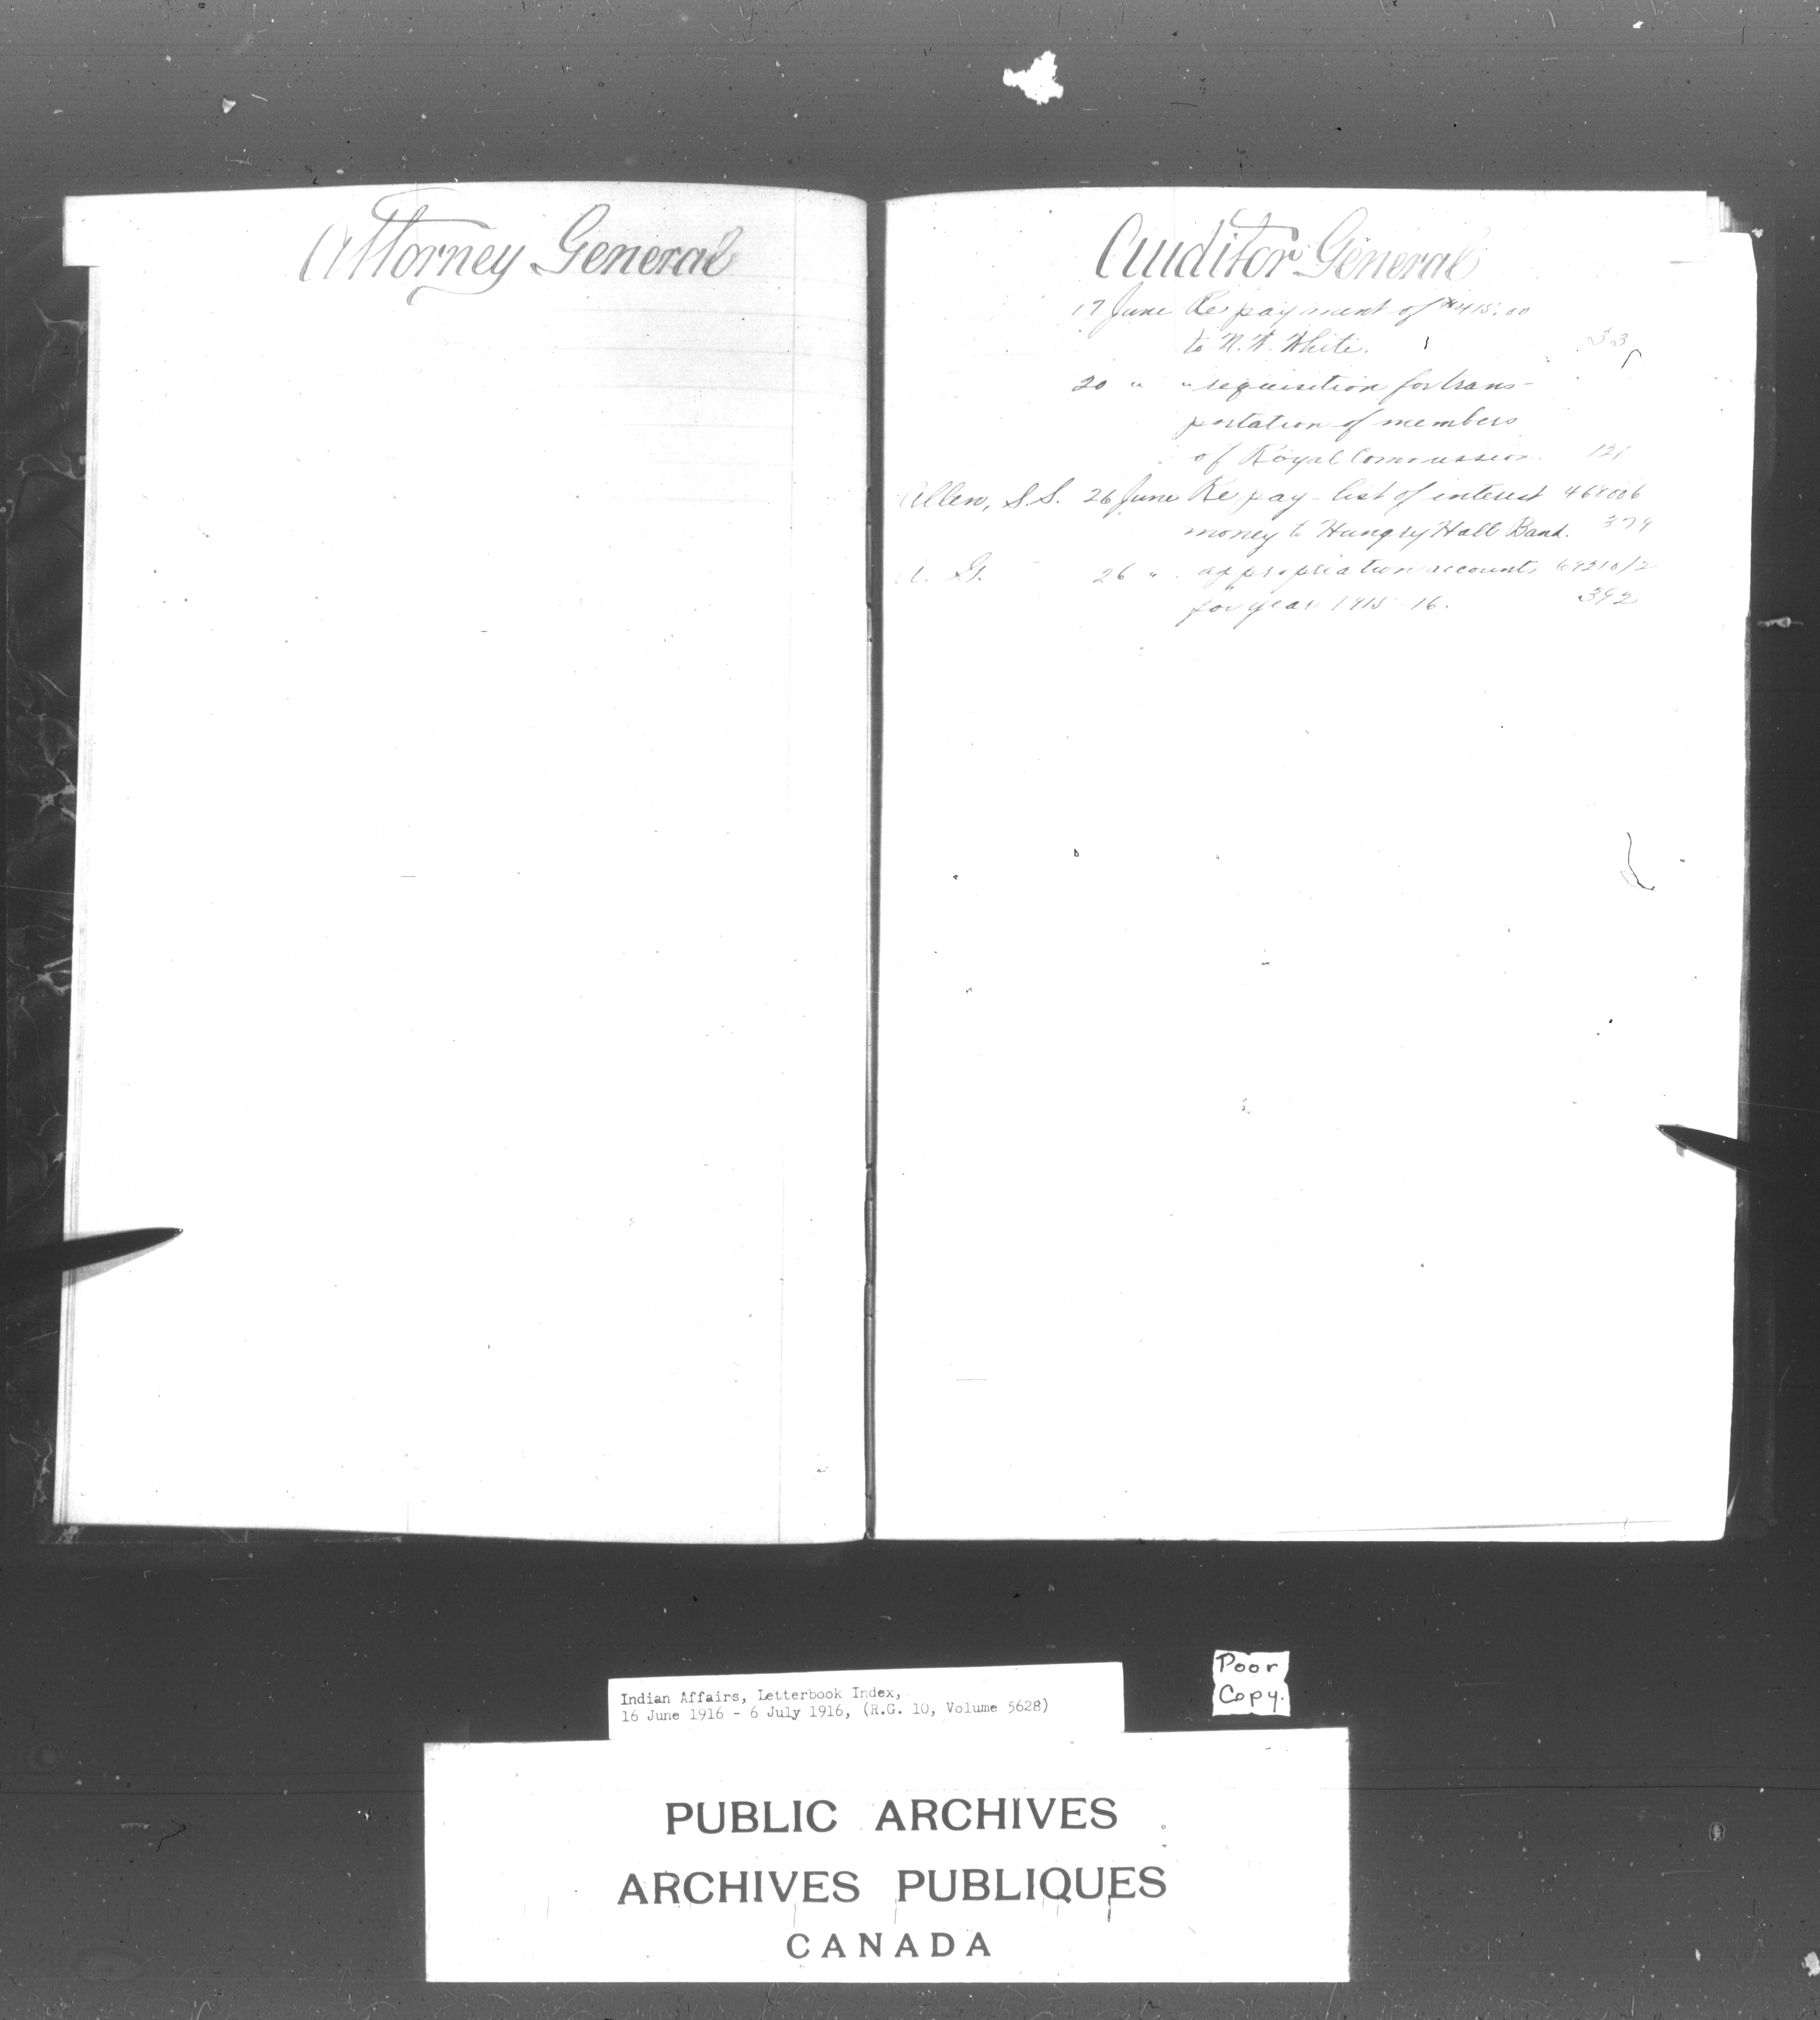 Attorney General
Auditor General
17 June Re payment of $415.00
to N. W. White. 33
20 " " requisition for trans-
portation of members
of Royal Commission. 121
Allen, S.S. 26 June Re pay-list of interest 468006
money to Hungry Hall Band. 379
A. G. 26 " appropriation accounts
for year 1915-16. 392
Poor
Copy.
Indian Affairs, Letterbook Index,
16 June 1916 - 6 July 1916, (R.G. 10, Volume 5628)
PUBLIC ARCHIVES
ARCHIVES PUBLIQUES
CANADA